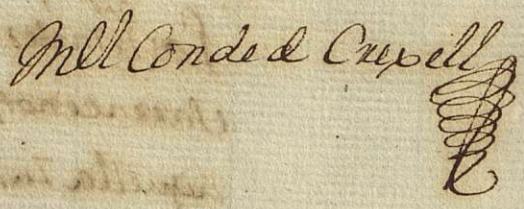 El Conde de Crexell